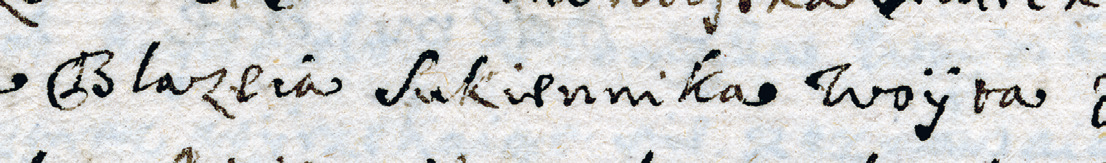 Blazeia Sukiennika Woÿta